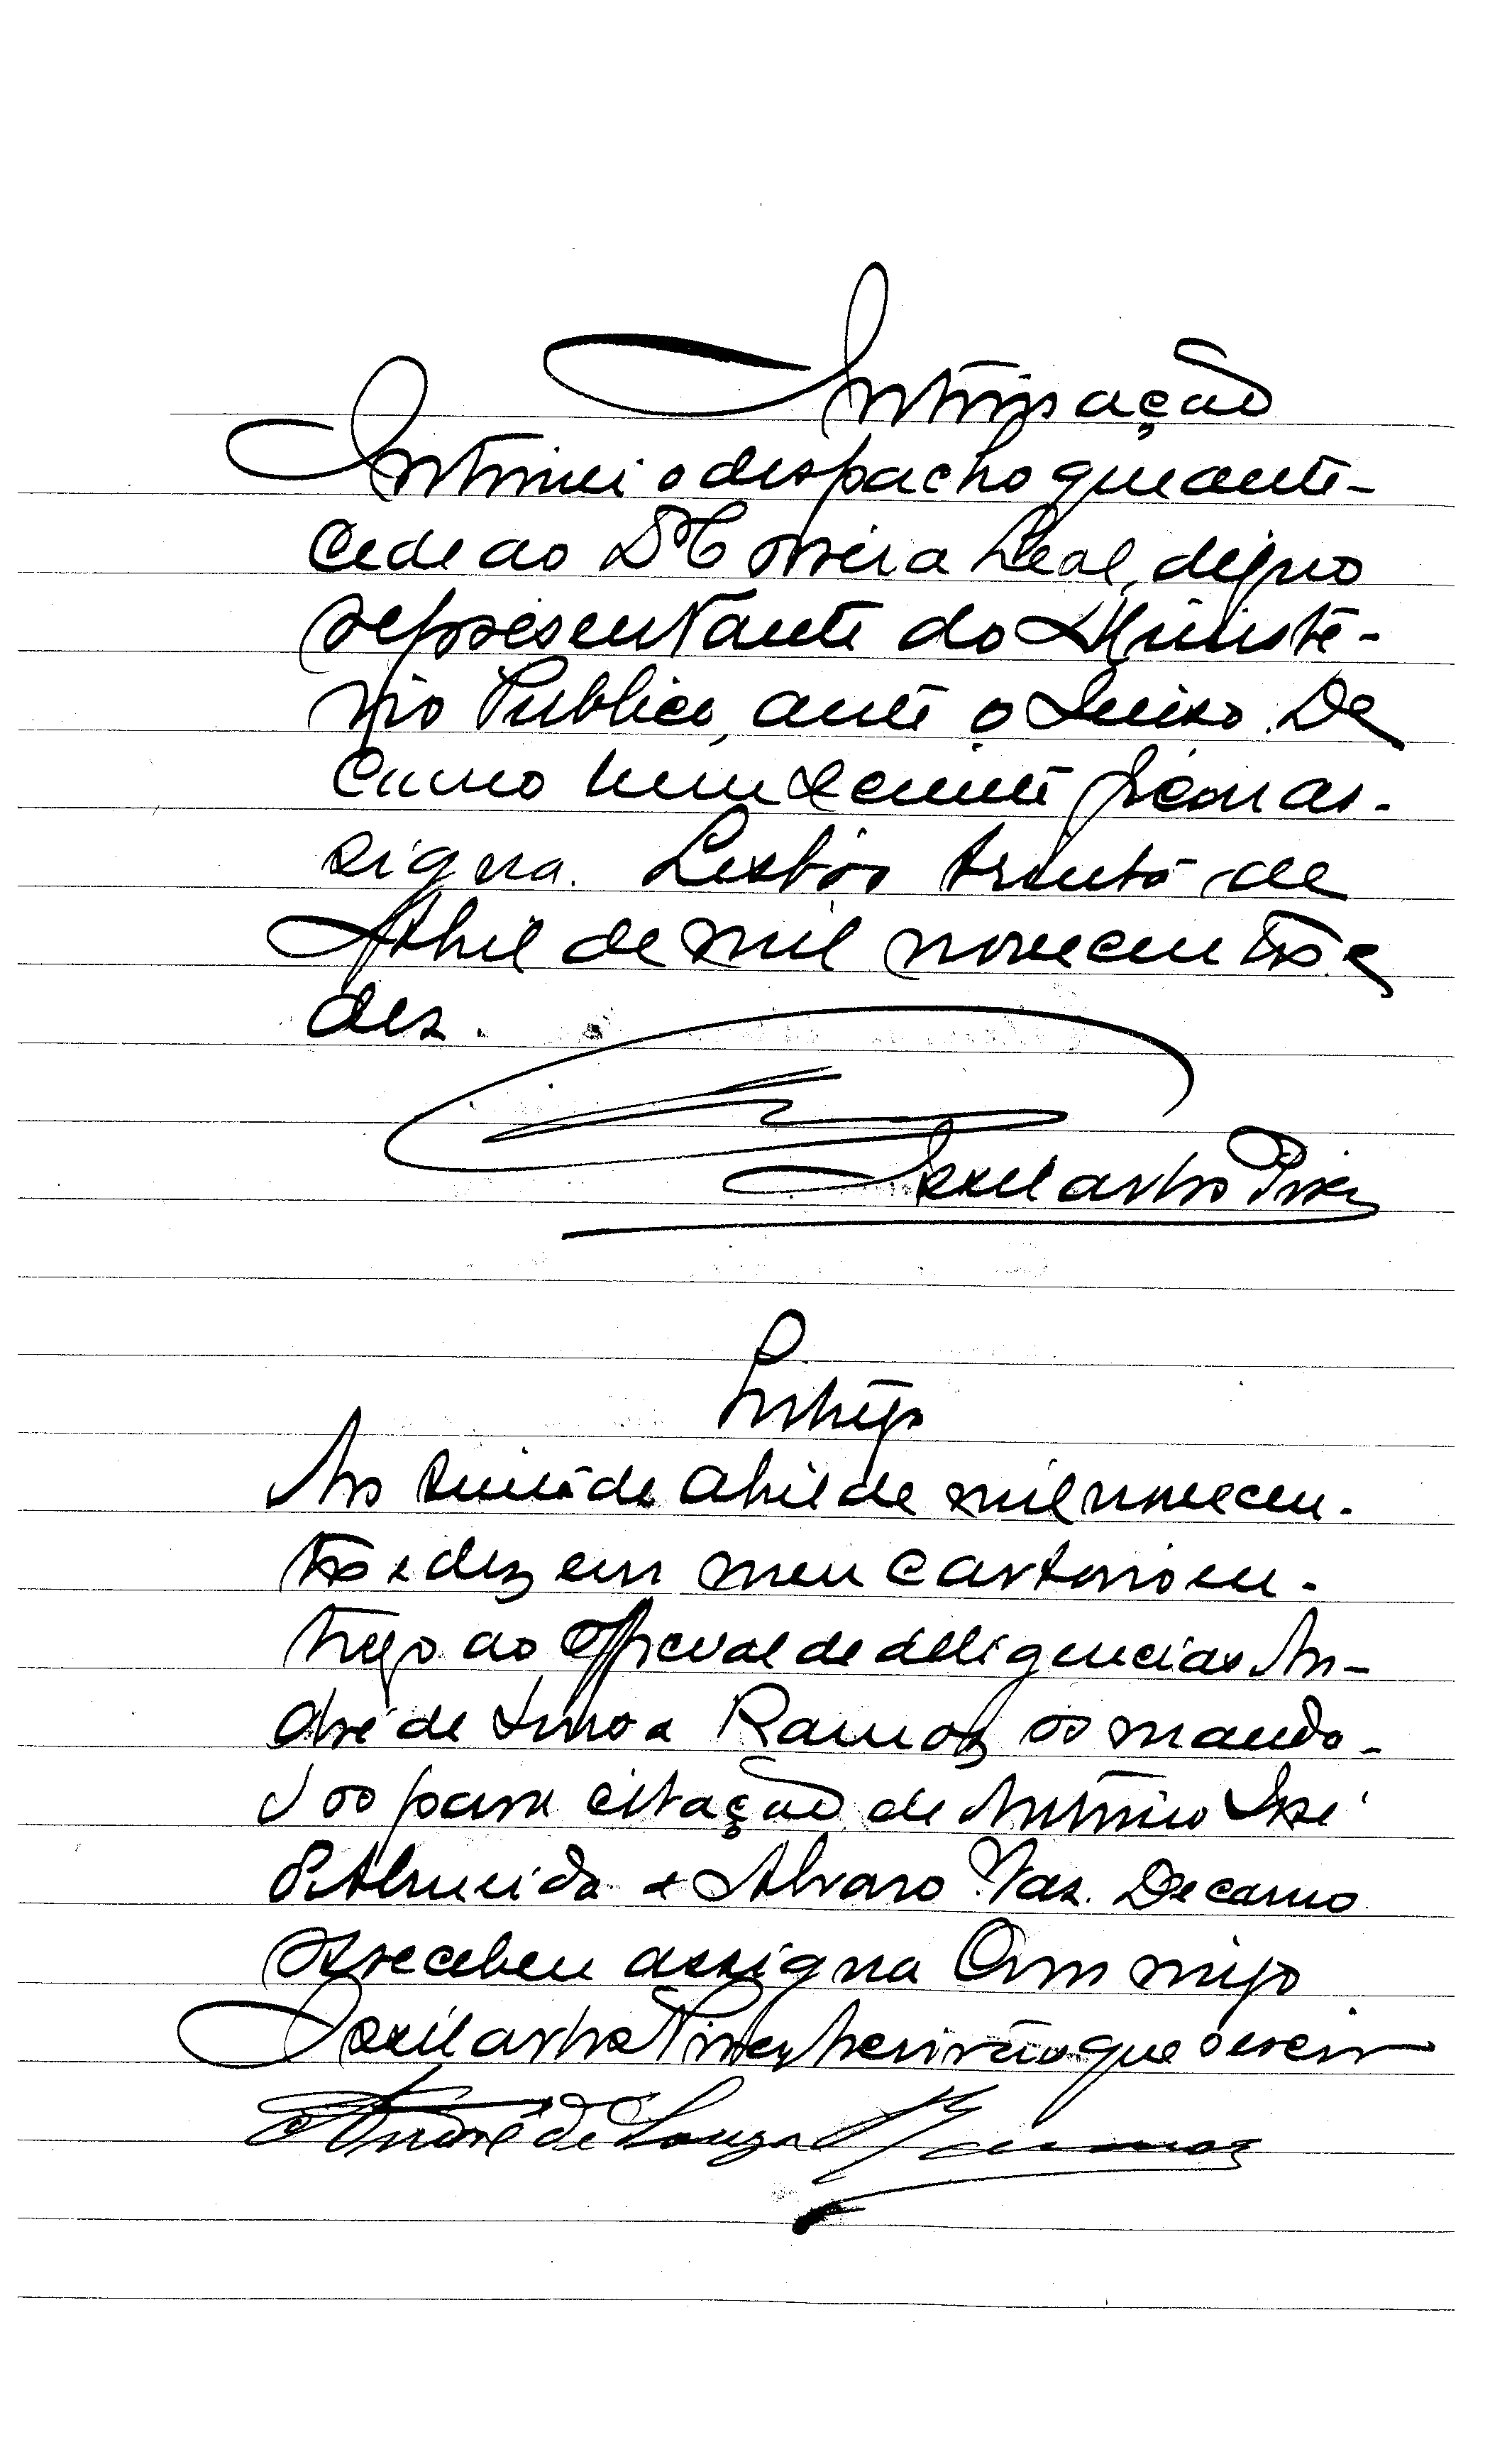 Intimação
Intimei o despacho que ante-
cede ao Dr Correia Leal, digno
representante do Ministe-
rio Publico, ante o Juizo. De
como bem sciente ficou as-
signa. Lisbôa trinta de
Abril de mil novecentos e
dez.
Pires
Entrega
Aos trinta de Abril de mil novecen-
tos e dez em meu cartorio en-
trego ao official de diligencias An-
dré de Souza Ramos os manda-
dos para citação de Antonio José
d'Almeida e Alvaro Vaz. De como
os recebeu assigna commigo
Pires, escrivão que o escrevi
André de Souza Ramos